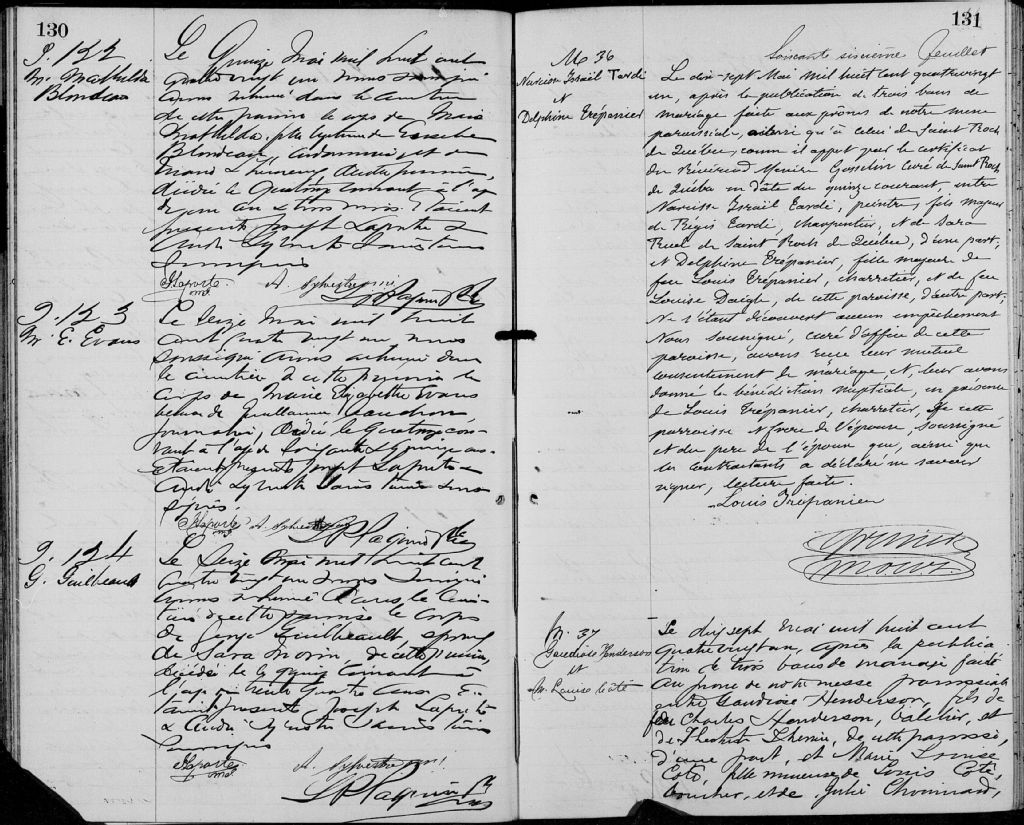 130
S. 122
M. Mathilda
Blondeau
Le Quinze Mai mil huit cent
quatre vingt un nous soussigné
avons inhumé dans le cimetière
de cette paroisse le corps de Marie
Mathilda, fille légitime de Eusèbe
Blondeau, cordonnier, et de
décédée le Quatorze courant, à l'age
de un an & trois mois. Etaient
présents Joseph Laporte &
André Sylvestre
soussignés
JLaporte A. Sylvestre
S. 123
M. E. Evans
Le Seize Mai mil huit
cent quatre vingt un nous
soussigné avons inhumé dans
le cimetière de cette paroisse le
corps de Marie Elizabeth Evans
de Guillaume
journalier, décédée le Quatorze cou-
rant à l'age de soixante & quinze ans
Etaient présents Joseph Laporte &
André Sylvestre
signés.
JLaporte A. Sylvestre
S. 124
G. Guilbeault
Le Seize Mai mil huit cent
quatre vingt un nous soussigné
avons inhumé dans le cime-
tière de cette paroisse le corps
de George Guilbeault, époux
de Sara Morin de cette paroisse,
décédé le quinze courant à
l'age de trente quatre ans. E-
taient présents Joseph Laporte
& André Sylvestre
soussignés
JLaporte A. Sylvestre
131
Soixante sixième Feuillet
M 36
Narcisse Israil Tardi
&
Delphine Trépanier
Le dix-sept Mai mil huit cent quatrevingt
un, après la publication de trois bans de
mariage faite aux prônes de notre messe
paroissiale, ainsi qu'à celui de Saint Roch
de Québec, comme il appert par le certificat
du Révérend Messire Gosselin Curé de Saint Roch
de Québec en date du quinze courant, entre
Narcisse Israil Tardi, peintre, fils majeur
de Régis Tardi, charpentier, & de Sara
Ruel de Saint Roch de Québec, d'une part;
& Delphine Trépanier, fille majeure de
feu Louis Trépanier, charretier, & de feu
Louise Daigle, de cette paroisse, d'autre part.
Ne s'étant découvert aucun empêchement
Nous soussigné, curé d'office de cette
paroisse, avons reçu leur mutuel
consentement de mariage & leur avons
donné la bénédiction nuptiale, en présence
de Louis Trépanier, charretier, de cette
parroisse & frere de l'épouse, soussigné
et du pere de l'époux qui, ainsi que
les contractants a déclaré ne savoir
signer, lecture faite.
Louis Trépanier
M. 37
Gaudiose Henderson
et
M. Louise Coté
Le dix sept Mai mil huit cent
quatrevingt un, après la publica-
tion de trois bans de mariage faite
au prone de notre messe paroissiale
entre Gaudiose Henderson, fils de
feu Charles Henderson, et
de cette paroisse,
d'une part, et Marie Louise
Coté, fille mineure de Louis Coté,
boucher, et de Julie Chouinard,